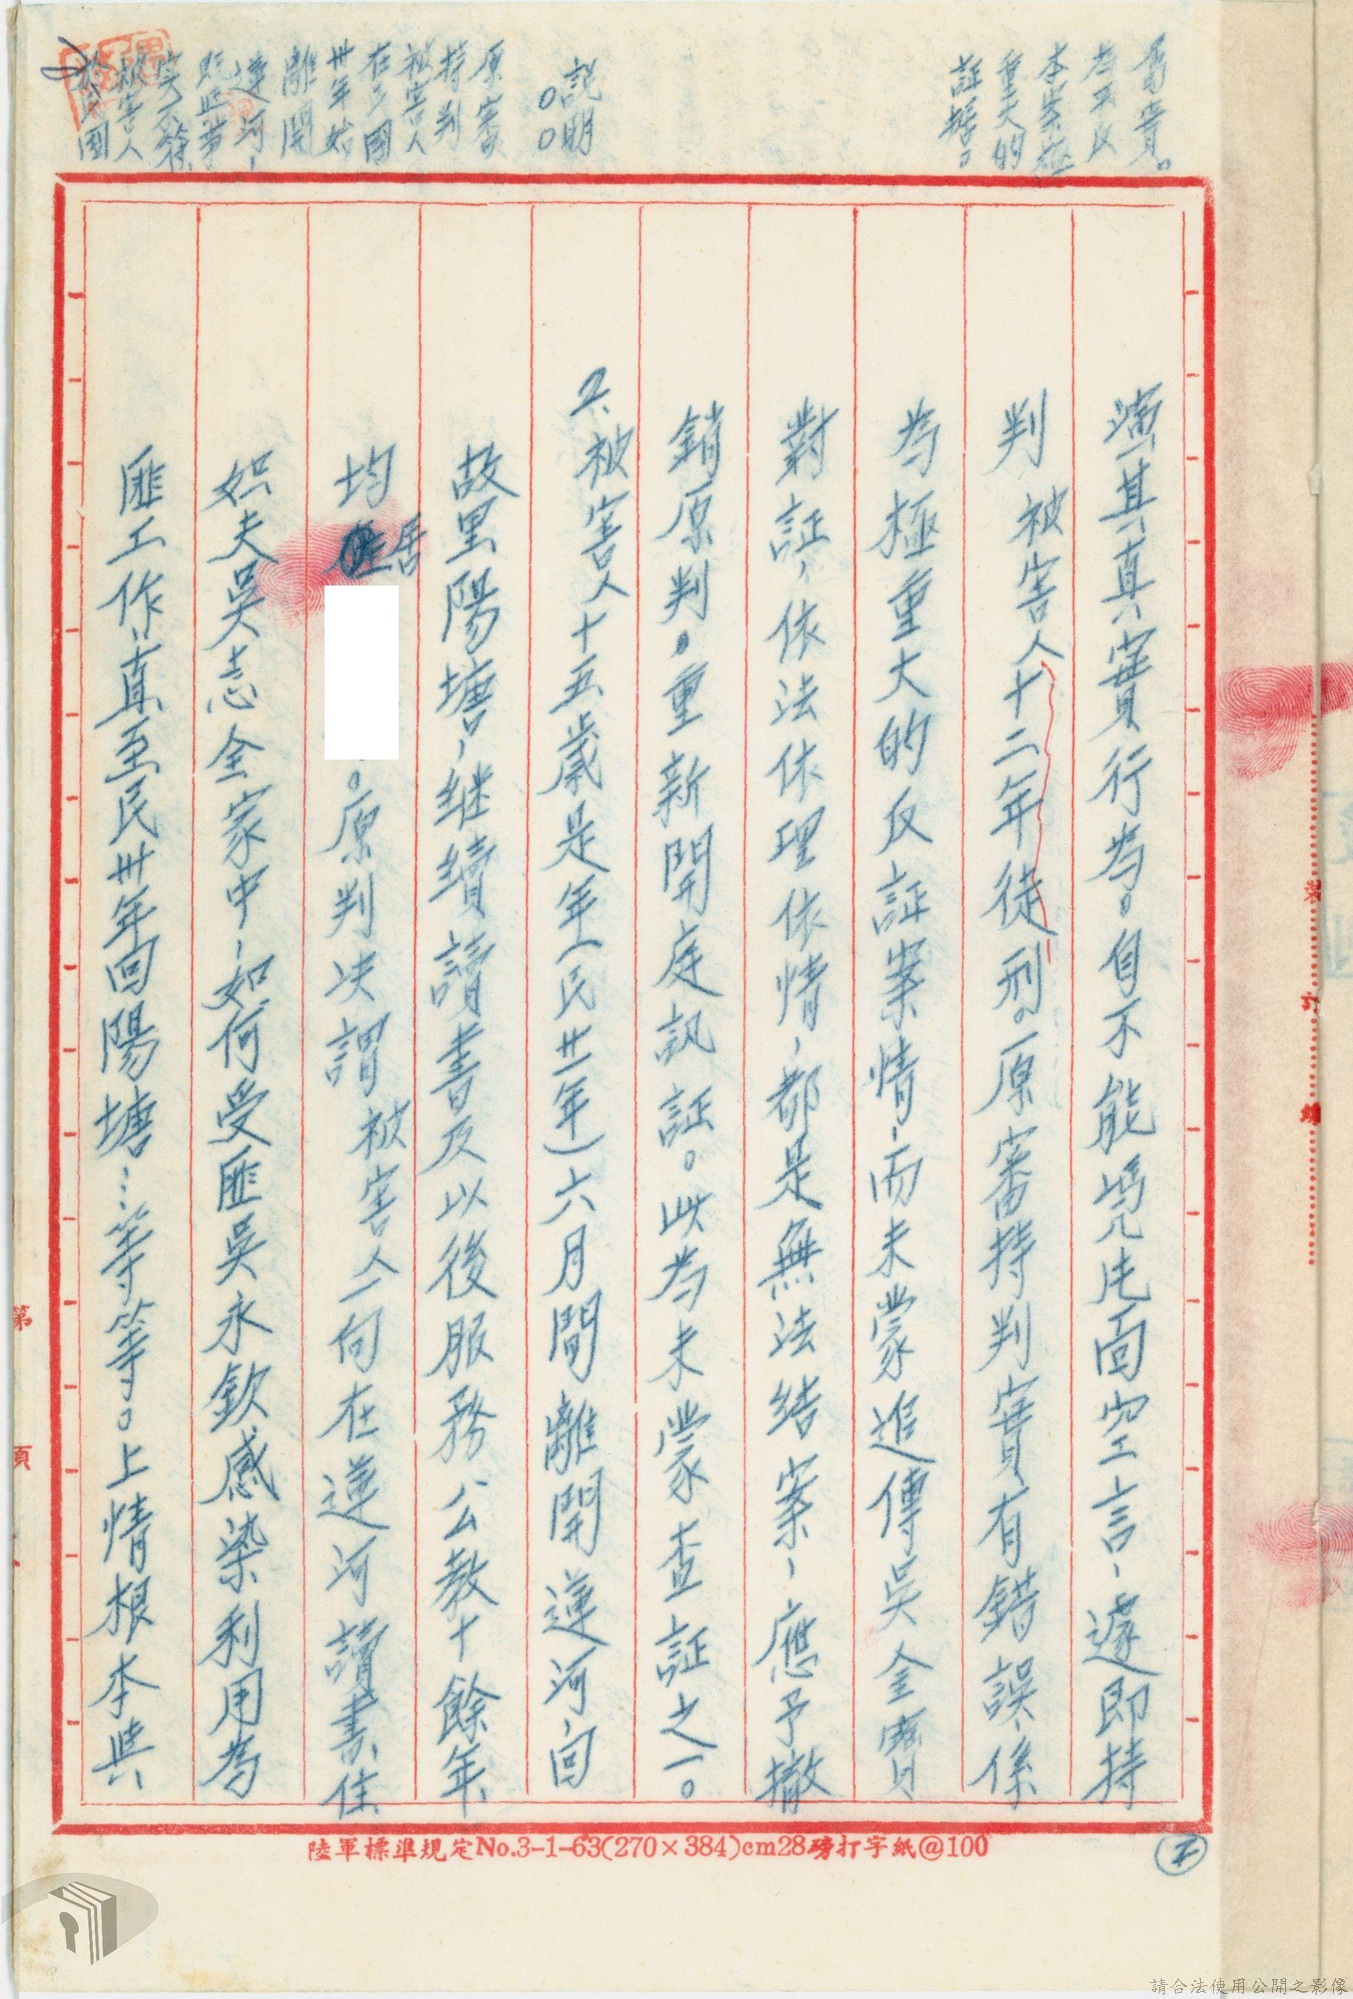 為平民
本案極
重大的
証據。
說明
○○
原審
持判
被害人
在民國
卅年始
離開
蓮河、
既與事
實不符
被害人
於民國
演其真實行為。自不能憑片面空言、遽即持
判 被害人十二年徒刑。原審持判實有錯誤、係
為極重大的反証案情、而未蒙追傳吳金寶
對証、依法依理依情、都是無法結案、應予撤
銷原判。重新開庭訊証。此為未蒙查証之一。
2、被害人十五歲是年(民廿一年)六月間離開蓮河、回
故里陽塘、继續讀書及以後服務公教十餘年、
均居
。原判决謂 被害人一向在蓮河讀書、住
姊夫吳志全家中、如何受匪吳永欽感染利用為
匪工作、直至民卅年回陽塘……等等。上情根本與
陸軍標準規定No.3-1-63(270×384)cm28磅打字紙@100
裝
訂
線
第
頁
請合法使用公開之影像